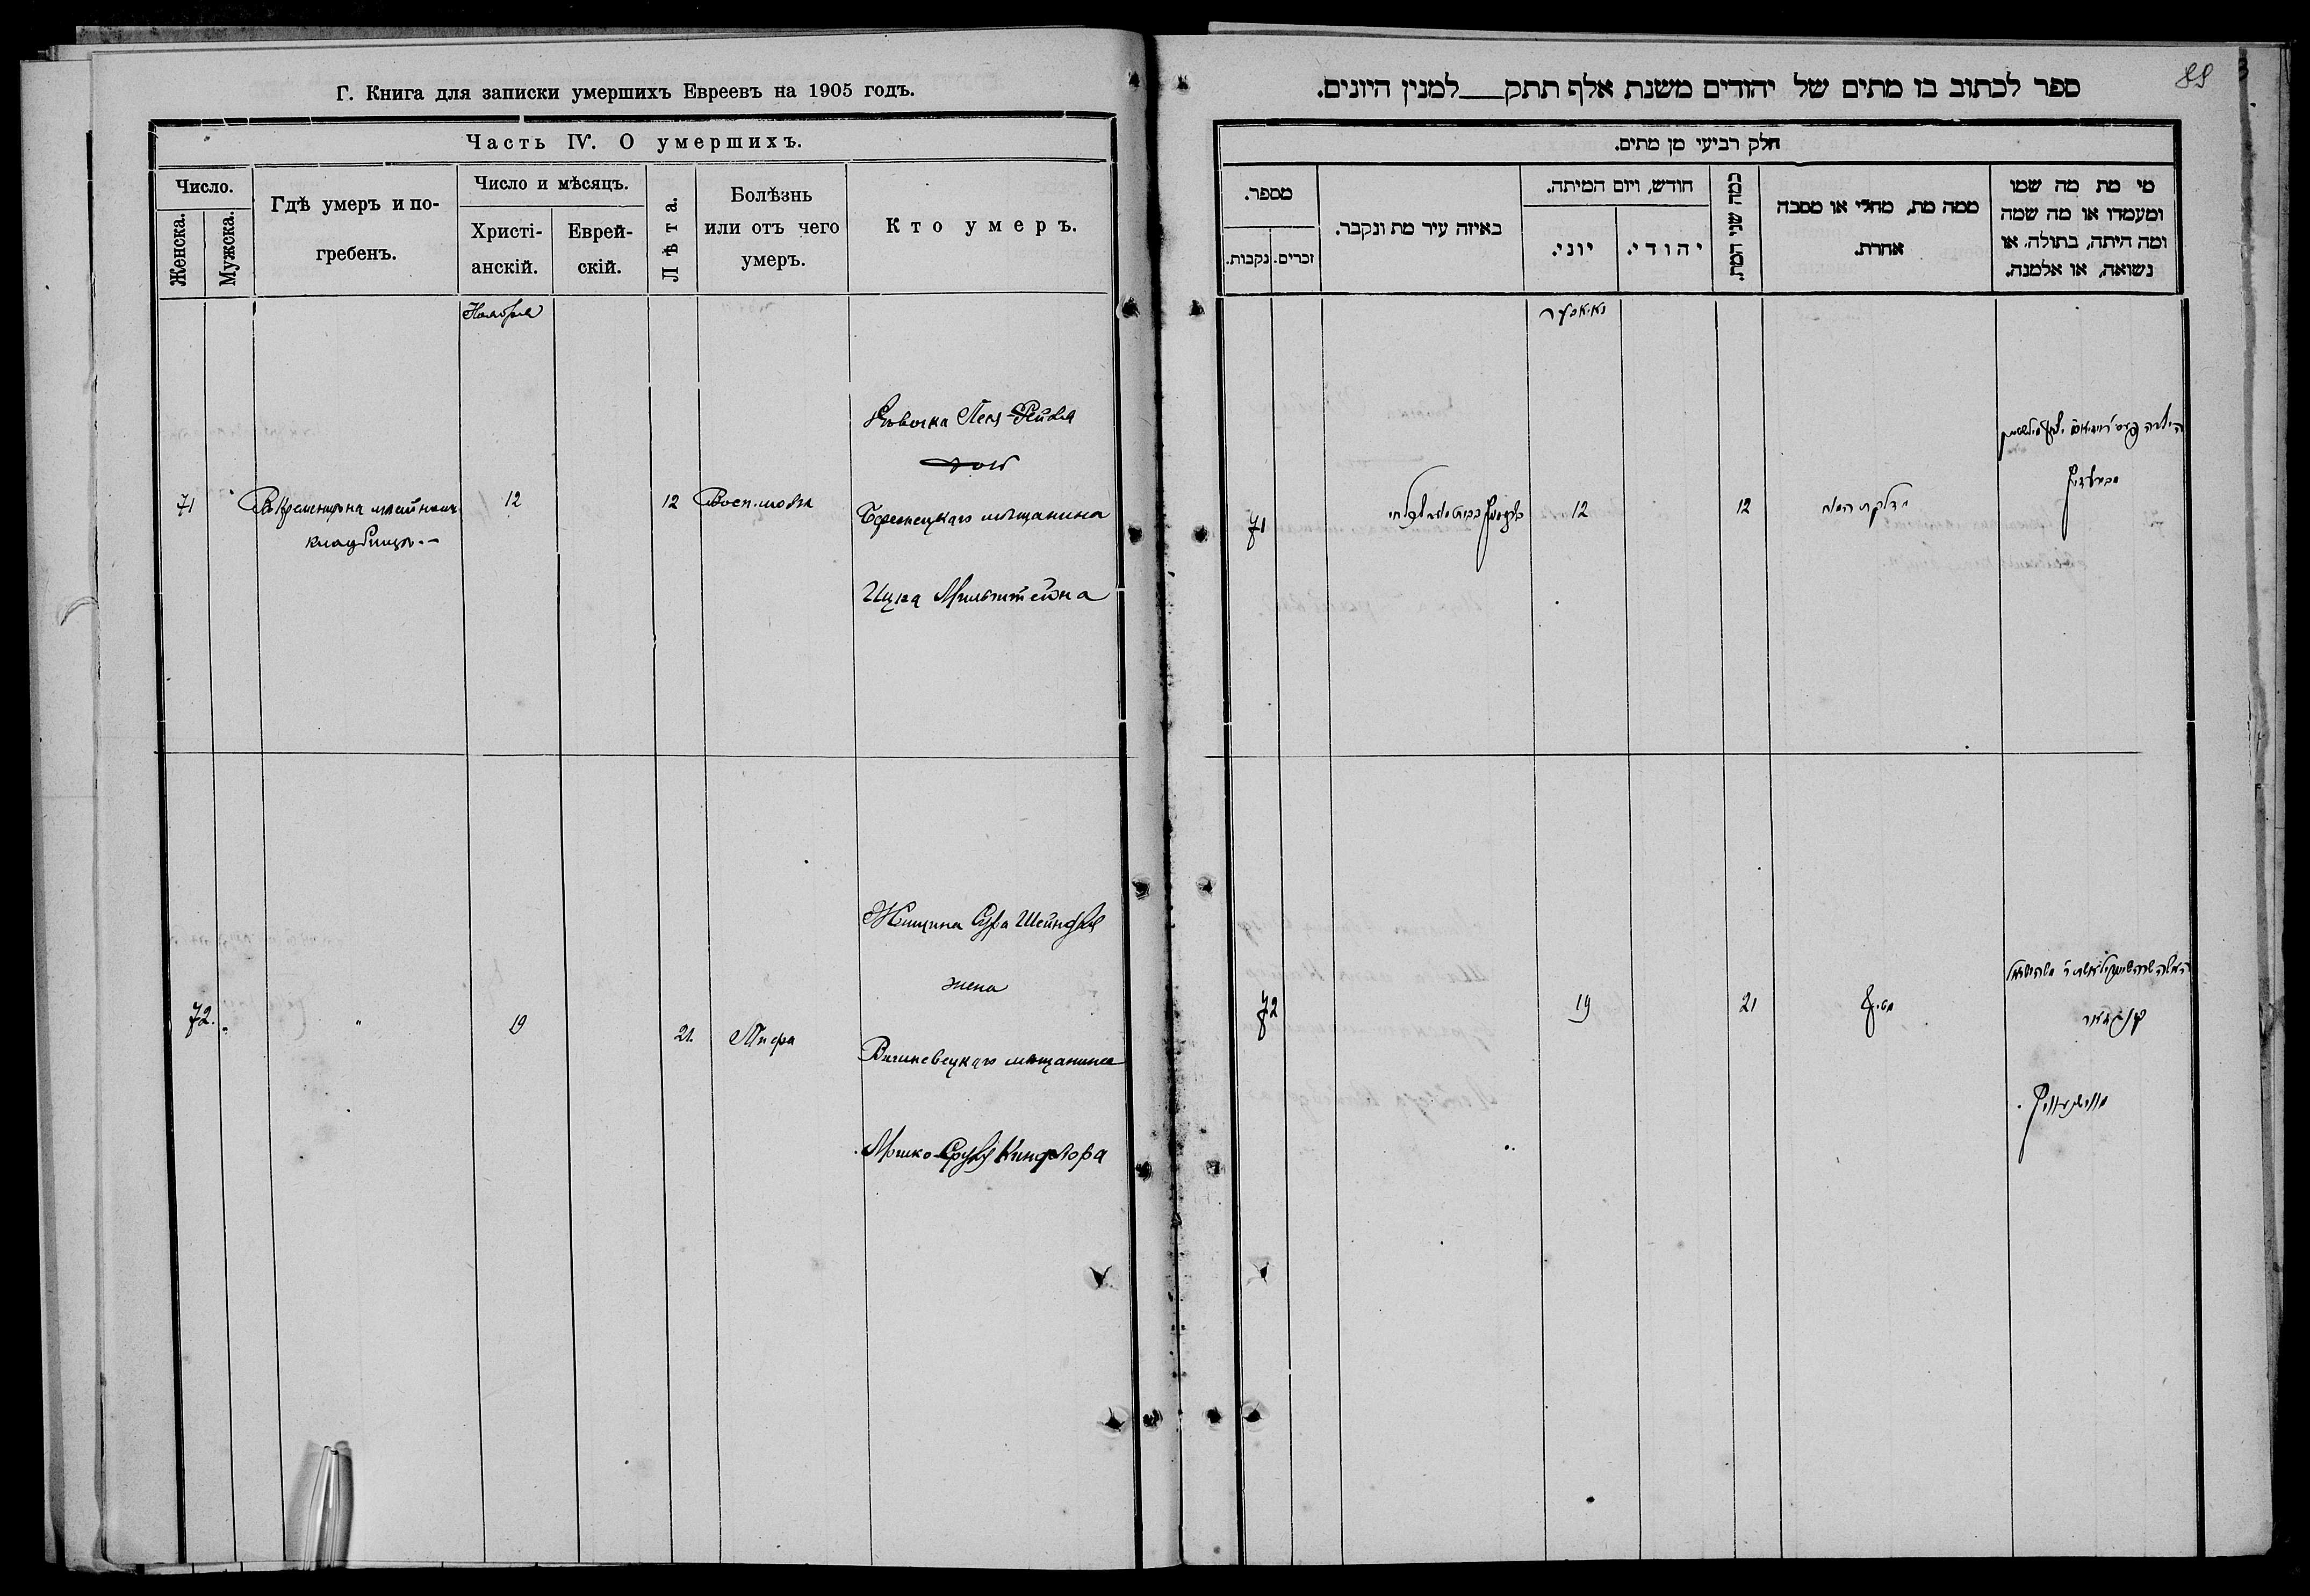 Г. Книга для записки умершихъ Евреевъ на 1905 годъ.
Часть IV. О умершихъ.
Число.
Женска.
Мужска.
Гдѣ умеръ и по-
гребенъ.
Число и мѣсяцъ.
Христі-
анскій.
Еврей-
скій.
Лѣта.
Болѣзнь
или отъ чего
умеръ.
Кто умеръ.
Ноября
71
кладбищѣ.-
12
12
Восп. мозга
Дѣвочка Песя-Рейвя
дочь
Бережецкаго мѣщанина
Ицка Мильштейна
72.
"
"
19
21.
Тифа
Женщина Сура Шейндля
жена
Вишневецкаго мѣщанина
Мошко-Сруля Кинфлора
ספר לכתוב בו מתים של יהודים משנת אלף תתק__למנין היונים.
88
חלק רביעי מן מתים.
מספר.
נקבות.
זכרים.
באיזה עיר מת ונקבר.
חודש, ויום המיתה.
יוני.
יהודי.
כמה שני המת.
ממה מת, מחלי או מסבה
אחרת.
מי מת מה שמו
ומעמדו או מה שמה
ומה היתה, בתולה, או
נשואה, או אלמנה.
71
12
12
דלקת המוח
72
19
21
טיף